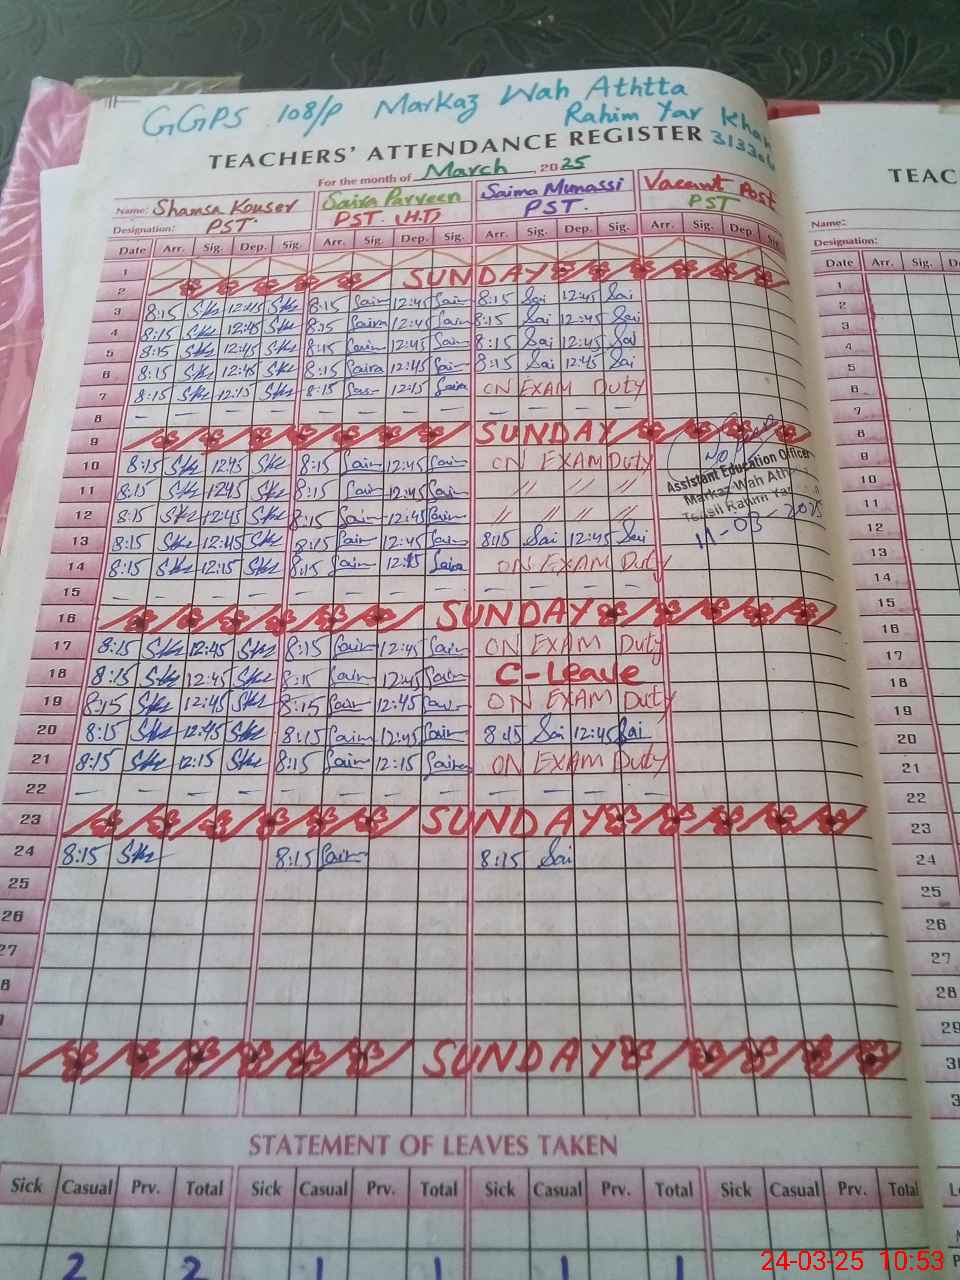 GGPS 108/P Markaz Wah Athtta
Rahim Yar Khan
TEACHERS' ATTENDANCE REGISTER
For the month of March, 2025
Name: Shamsa Kouser Saira Parveen Saima Munassi Vacant Post
Designation: PST. PST. (H.T) PST. PST
Date Arr. Sig. Dep. Sig. Arr. Sig. Dep. Sig. Arr. Sig. Dep. Sig. Arr. Sig. Dep. Sig.
1
2 SUNDAY
3 8:15 12:45 8:15 12:45 8:15 Sai 12:45 Sai
4 8:15 12:45 8:15 Saira 12:45 8:15 Sai 12:45 Sai
5 8:15 12:45 8:15 12:45 8:15 Sai 12:45 Sai
6 8:15 12:45 8:15 Saira 12:45 8:15 Sai 12:45 Sai
7 8:15 12:15 8:15 12:15 Saira ON EXAM Duty
8 — — — — — — — — — — — —
9 SUNDAY
10 8:15 12:45 8:15 12:45 ON EXAM Duty
11 8:15 12:45 8:15 12:45 // // // //
12 8:15 12:45 8:15 12:45 // // // //
13 8:15 12:45 8:15 12:45 8:15 Sai 12:45 Sai
14 8:15 12:15 8:15 12:15 Saira ON EXAM Duty
15 — — — — — — — — — — — —
16 SUNDAY
17 8:15 12:45 8:15 12:45 ON EXAM Duty
18 8:15 12:45 8:15 12:45 C-Leave
19 8:15 12:45 8:15 12:45 ON EXAM Duty
20 8:15 12:45 8:15 12:45 8:15 Sai 12:45 Sai
21 8:15 12:15 8:15 12:15 Saira ON EXAM Duty
22 — — — — — — — — — — — —
23 SUNDAY
24 8:15 8:15 8:15 Sai
25
26
27
8
SUNDAY
Assistant Education Officer
Markaz Wah Ath
Tehsil Rahim Yar
11-03-2025
STATEMENT OF LEAVES TAKEN
Sick Casual Prv. Total Sick Casual Prv. Total Sick Casual Prv. Total Sick Casual Prv. Total
2 2 1 1 1 1
TEAC
Name:
Designation:
Date Arr. Sig.
1
2
3
4
5
6
7
8
9
10
11
12
13
14
15
16
17
18
19
20
21
22
23
24
25
26
27
28
29
24-03-25 10:53